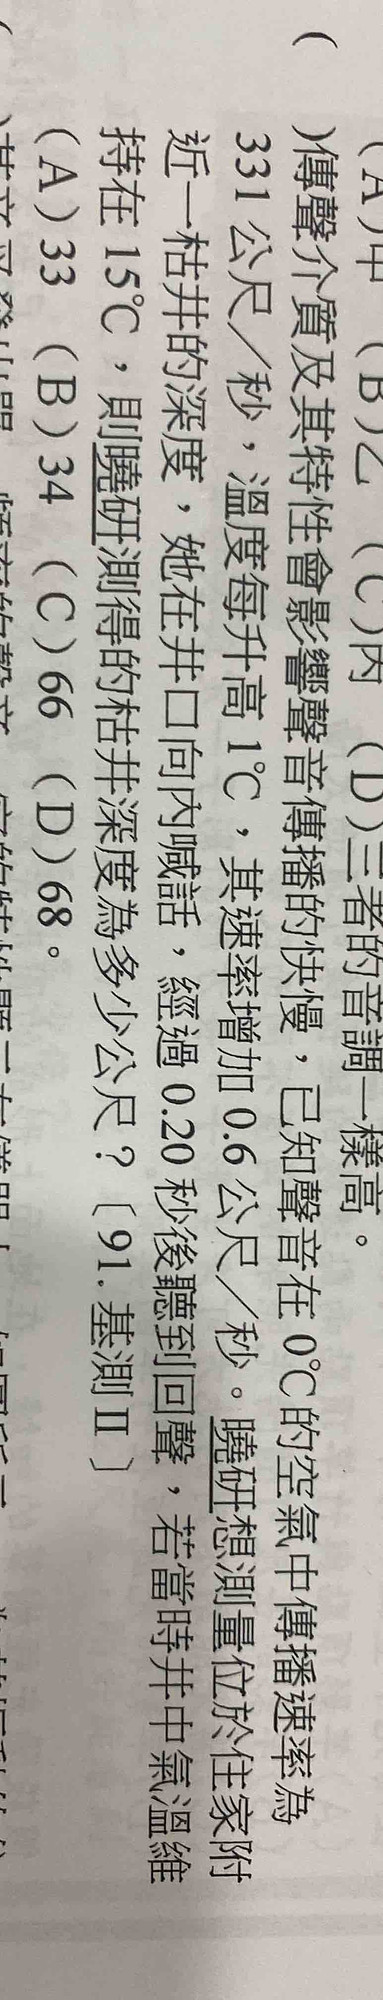 (A)甲 (B)乙 (C)丙 (D)三者的音調一樣高。
( )傳聲介質及其特性會影響聲音傳播的快慢，已知聲音在 0℃的空氣中傳播速率為
331 公尺／秒，溫度每升高 1℃，其速率增加 0.6 公尺／秒。曉研想測量位於住家附
近一枯井的深度，她在井口向內喊話，經過 0.20 秒後聽到回聲，若當時井中氣溫維
持在 15℃，則曉研測得的枯井深度為多少公尺？〔91.基測Ⅱ〕
(A)33 (B)34 (C)66 (D)68。